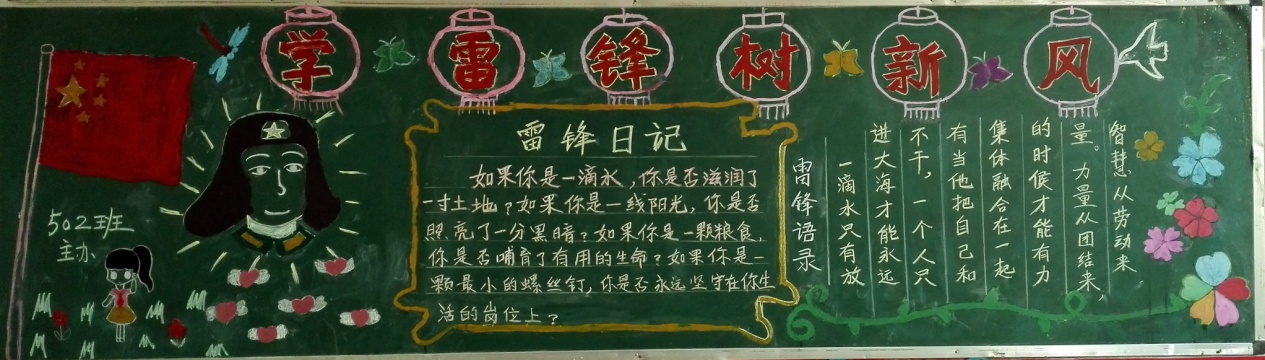 学雷锋树新风
雷锋日记
如果你是一滴水，你是否滋润了
一寸土地？如果你是一线阳光，你是否
照亮了一分黑暗？如果你是一颗粮食，
你是否哺育了有用的生命？如果你是一
颗最小的螺丝钉，你是否永远坚守在你生
活的岗位上？
雷锋语录
一滴水只有放
进大海才能永远
不干，一个人只
有当他把自己和
集体融合在一起
的时候才能有力
量。力量从团结来，
智慧从劳动来
502班
主办